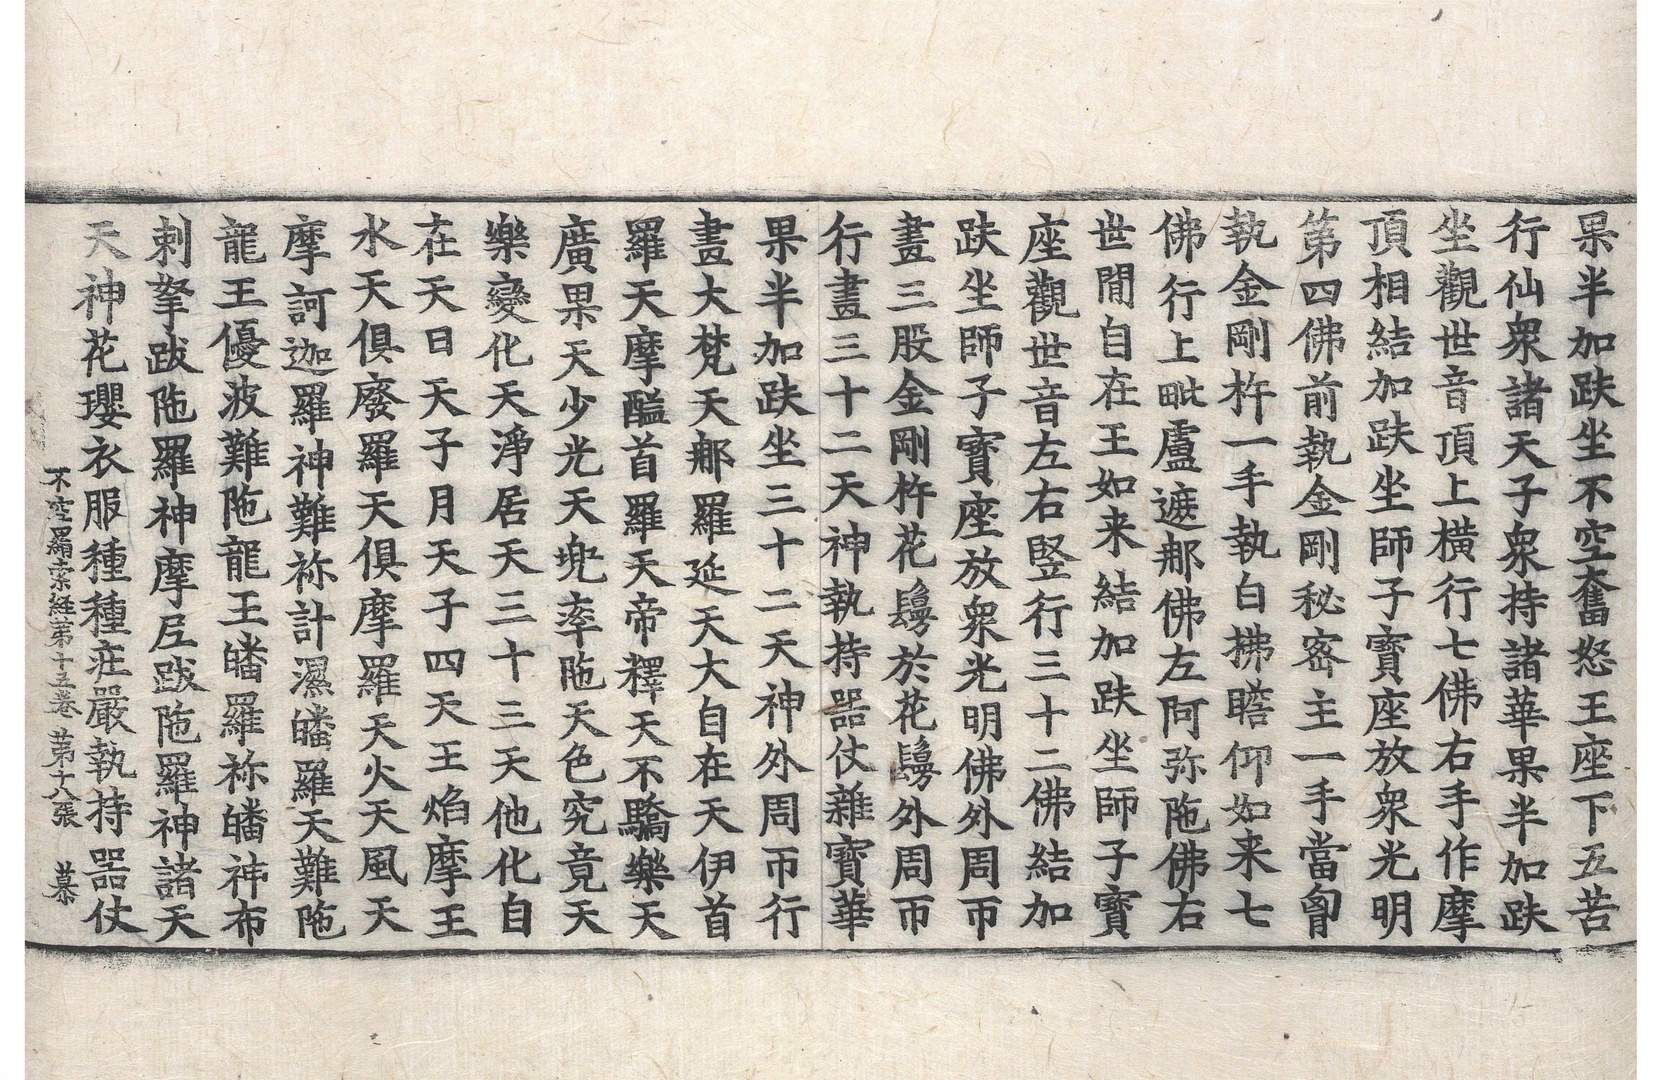 果半加趺坐不空奮怒王座下五苦
行仙衆諸天子衆持諸華果半加趺
坐觀世音頂上橫行七佛右手作摩
頂相結加趺坐師子寶座放衆光明
第四佛前執金剛秘密主一手當匈
執金剛杵一手執白拂瞻仰如来七
佛行上毗盧遮那佛左阿弥陁佛右
世閒自在王如来結加趺坐師子寶
座觀世音左右竪行三十二佛結加
趺坐師子寶座放衆光明佛外周帀
畫三股金剛杵花鬘於花鬘外周帀
行畫三十二天神執持器仗雜寶華
果半加趺坐三十二天神外周帀行
畫大梵天那羅延天大自在天伊首
羅天摩醯首羅天帝釋天不驕樂天
廣果天少光天兠率陁天色究竟天
樂變化天淨居天三十三天他化自
在天日天子月天子四天王焰摩王
水天俱廢羅天俱摩羅天火天風天
摩訶迦羅神難祢計濕皤羅天難陁
龍王優波難陁龍王皤羅祢皤神布
刺拏跋陁羅神摩尼跋陁羅神諸天
天神花瓔衣服種種莊嚴執持器仗
不空羂索経第十五卷 第十八張 慕